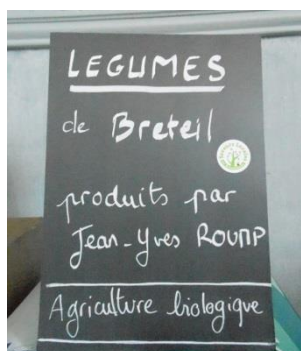 LEGUMES
de Breteil
produits par
Jean-Yves
Agriculture biologique